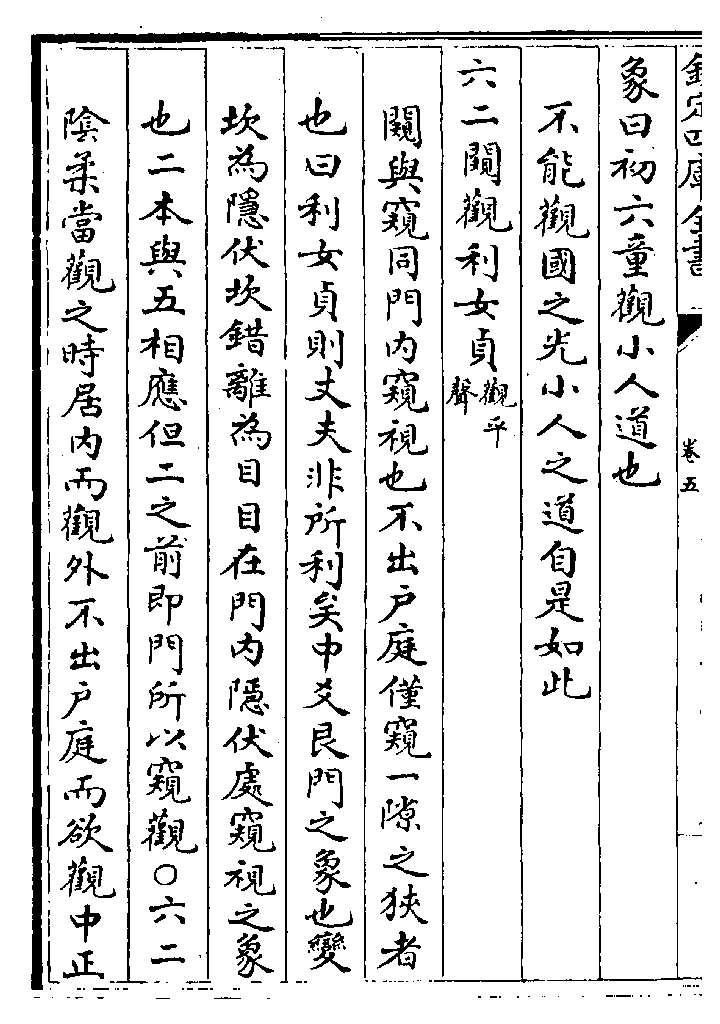 欽定四庫全書
卷五
象曰初六童觀小人道也
不能觀國之光小人之道自是如此
六二闚觀利女貞觀平聲
闚與窺同門内窺視也不出户庭僅窺一隙之狹者
也曰利女貞則丈夫非所利矣中爻艮門之象也變
坎為隱伏坎錯離為目目在門内隱伏處窺視之象
也二本與五相應但二之前即門所以窺觀○六二
陰柔當觀之時居内而觀外不出户庭而欲觀中正